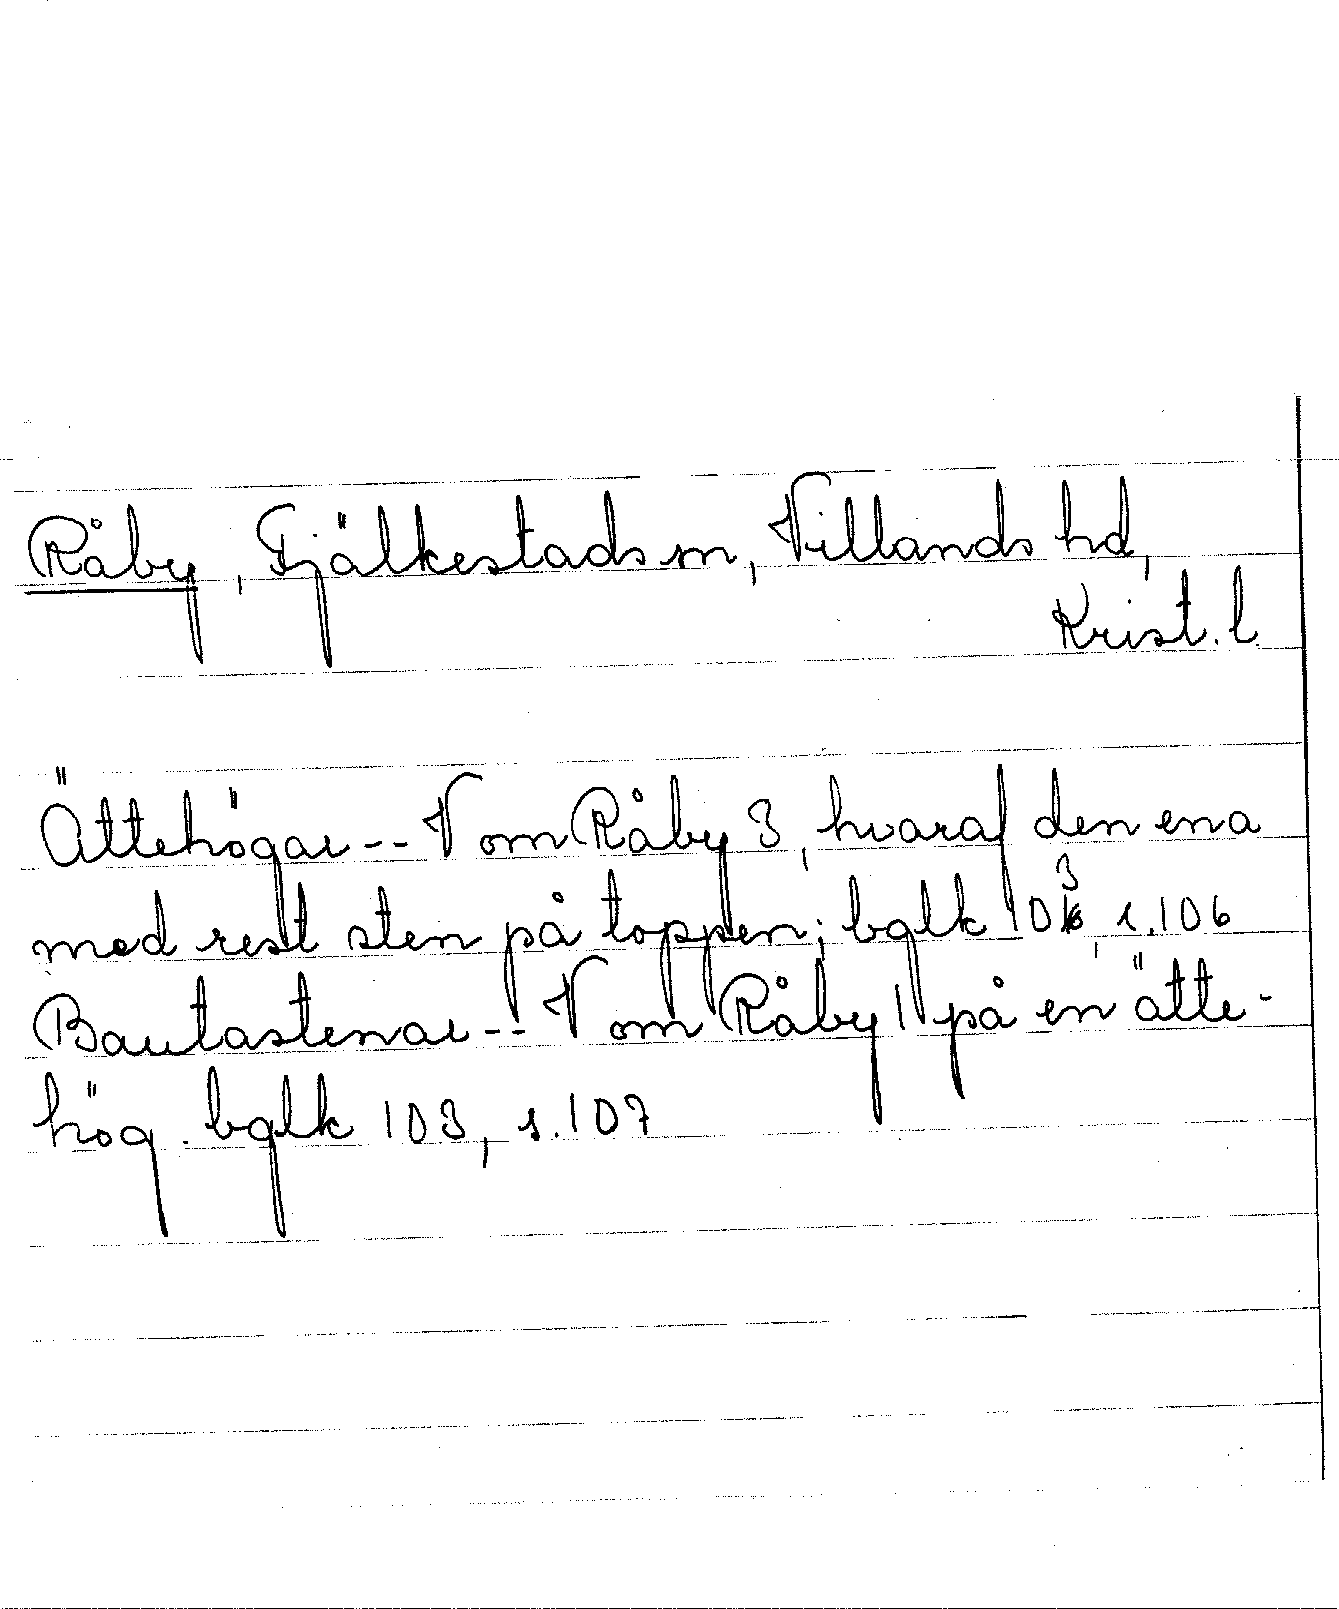 Råby, Fjälkestads sn, Villands hd,
Krist. l.
Ättehögar -- V om Råby 3, hvaraf den ena
med rest sten på toppen; bglk 103, s. 106
Bautastenar -- V om Råby 1 på en ätte-
hög. bglk 103, s. 107